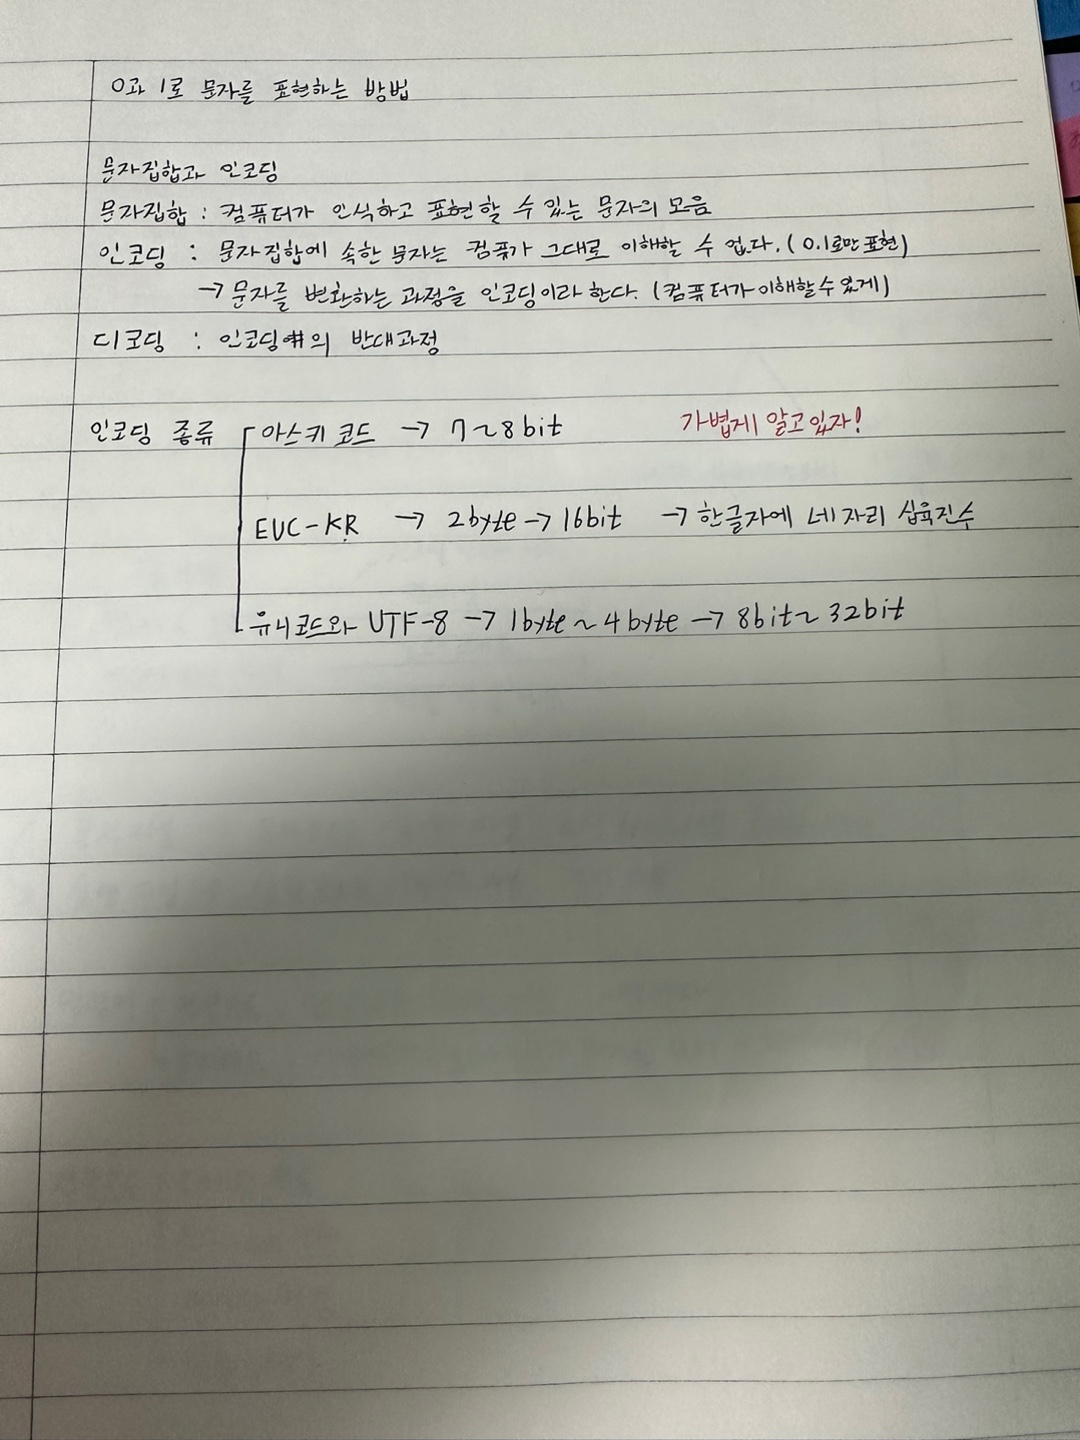 0과 1로 문자를 표현하는 방법
문자집합과 인코딩
문자집합 : 컴퓨터가 인식하고 표현할 수 있는 문자의 모음
인코딩 : 문자집합에 속한 문자는 컴퓨가 그대로 이해할 수 없다. (0.1로만 표현)
→ 문자를 변환하는 과정을 인코딩이라 한다. (컴퓨터가 이해할 수 있게)
디코딩 : 인코딩의 반대과정
인코딩 종류 아스키 코드 → 7~8bit 가볍게 알고있자!
EUC-KR → 2byte → 16bit → 한글자에 네 자리 십육진수
유니코드와 UTF-8 → 1byte ~ 4byte → 8bit ~ 32bit